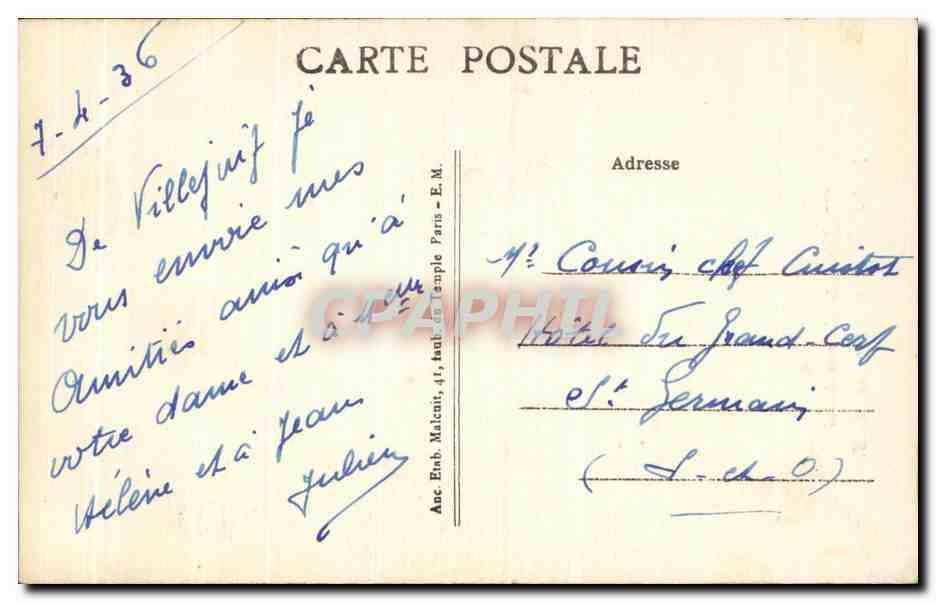 CARTE POSTALE
7-4-36
De Villejuif je
vous envoie mes
Amitiés ainsi qu'à
votre dame et à Melle
Hélène et à Jean
Julien
Anc. Etab. Malcuit, 41, faub. du Temple Paris - E. M.
Adresse
Mr. Cousin chef Cuistot
Hôtel du Grand-Cerf
St. Germain
(S-et-O)
CPAPHIL